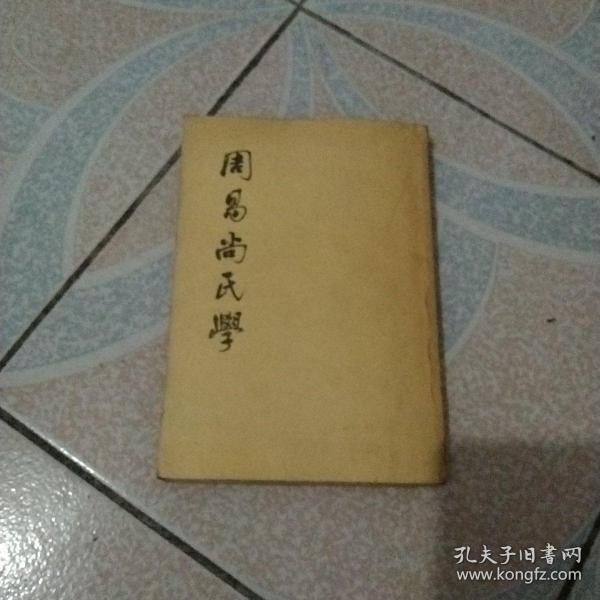 周易尚氏學
孔夫子旧書网
www.kongfz.com